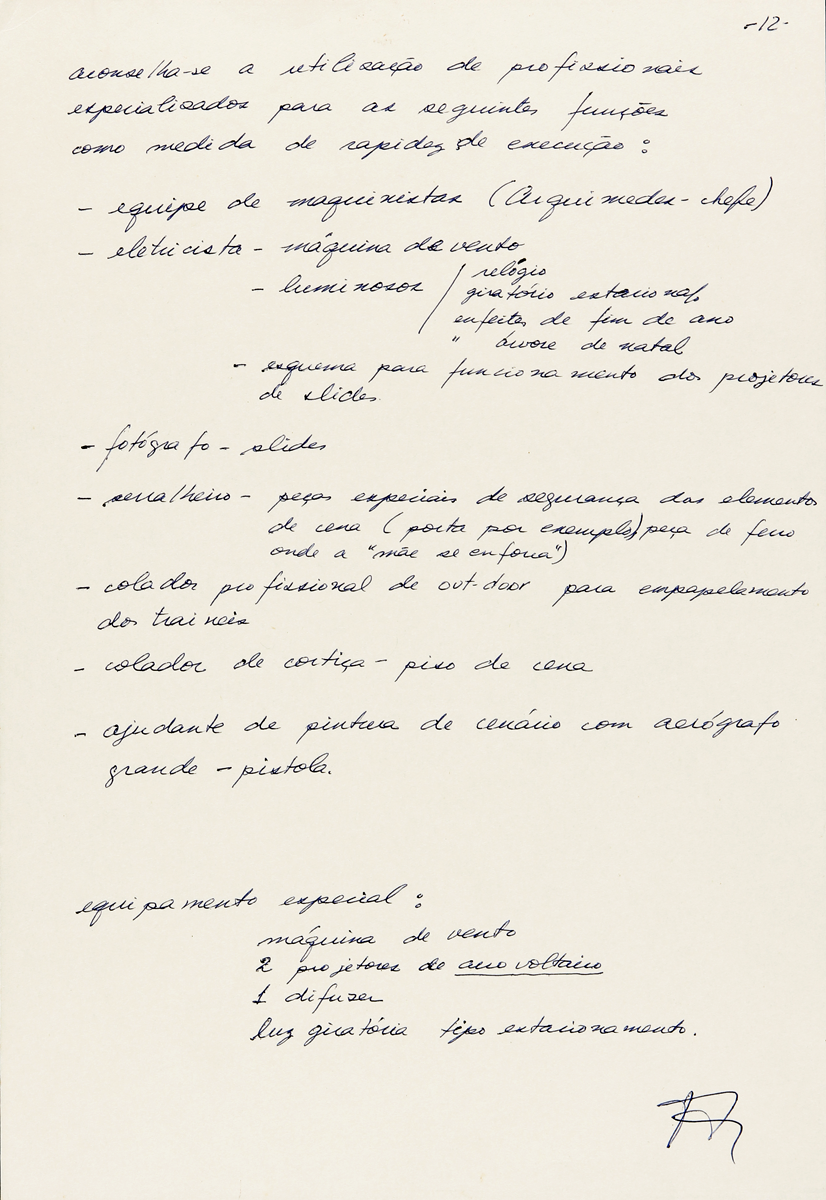 -12-
aconselha-se a utilização de profissionais
especializados para as seguintes funções
como medida de rapidez de execução :
- equipe de maquinistas (Arquimedes - chefe)
- eletricista - máquina de vento
- luminosos / relógio
giratório estacionaṭ.
enfeites de fim de ano
" árvore de natal
- esquema para funcionamento dos projetores
de slides.
- fotógrafo - slides
- serralheiro - peças especiais de segurança dos elementos
de cena (porta por exemplo) peça de ferro
onde a "mãe se enforca")
- colador profissional de out-door para empapelamento
dos traineis
- colador de cortiça - piso de cena
- ajudante de pintura de cenário com aerógrafo
grande - pistola.
equipamento especial :
máquina de vento
2 projetores de arco voltaico
1 difuser
luz giratória tipo estacionamento.